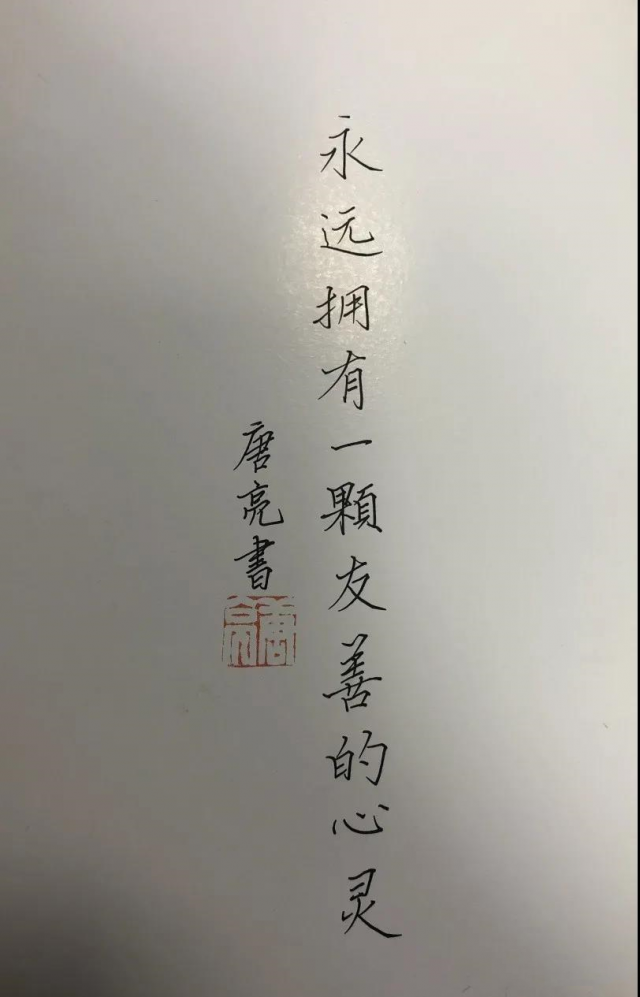 永远拥有一顆友善的心灵
唐亮書
唐亮